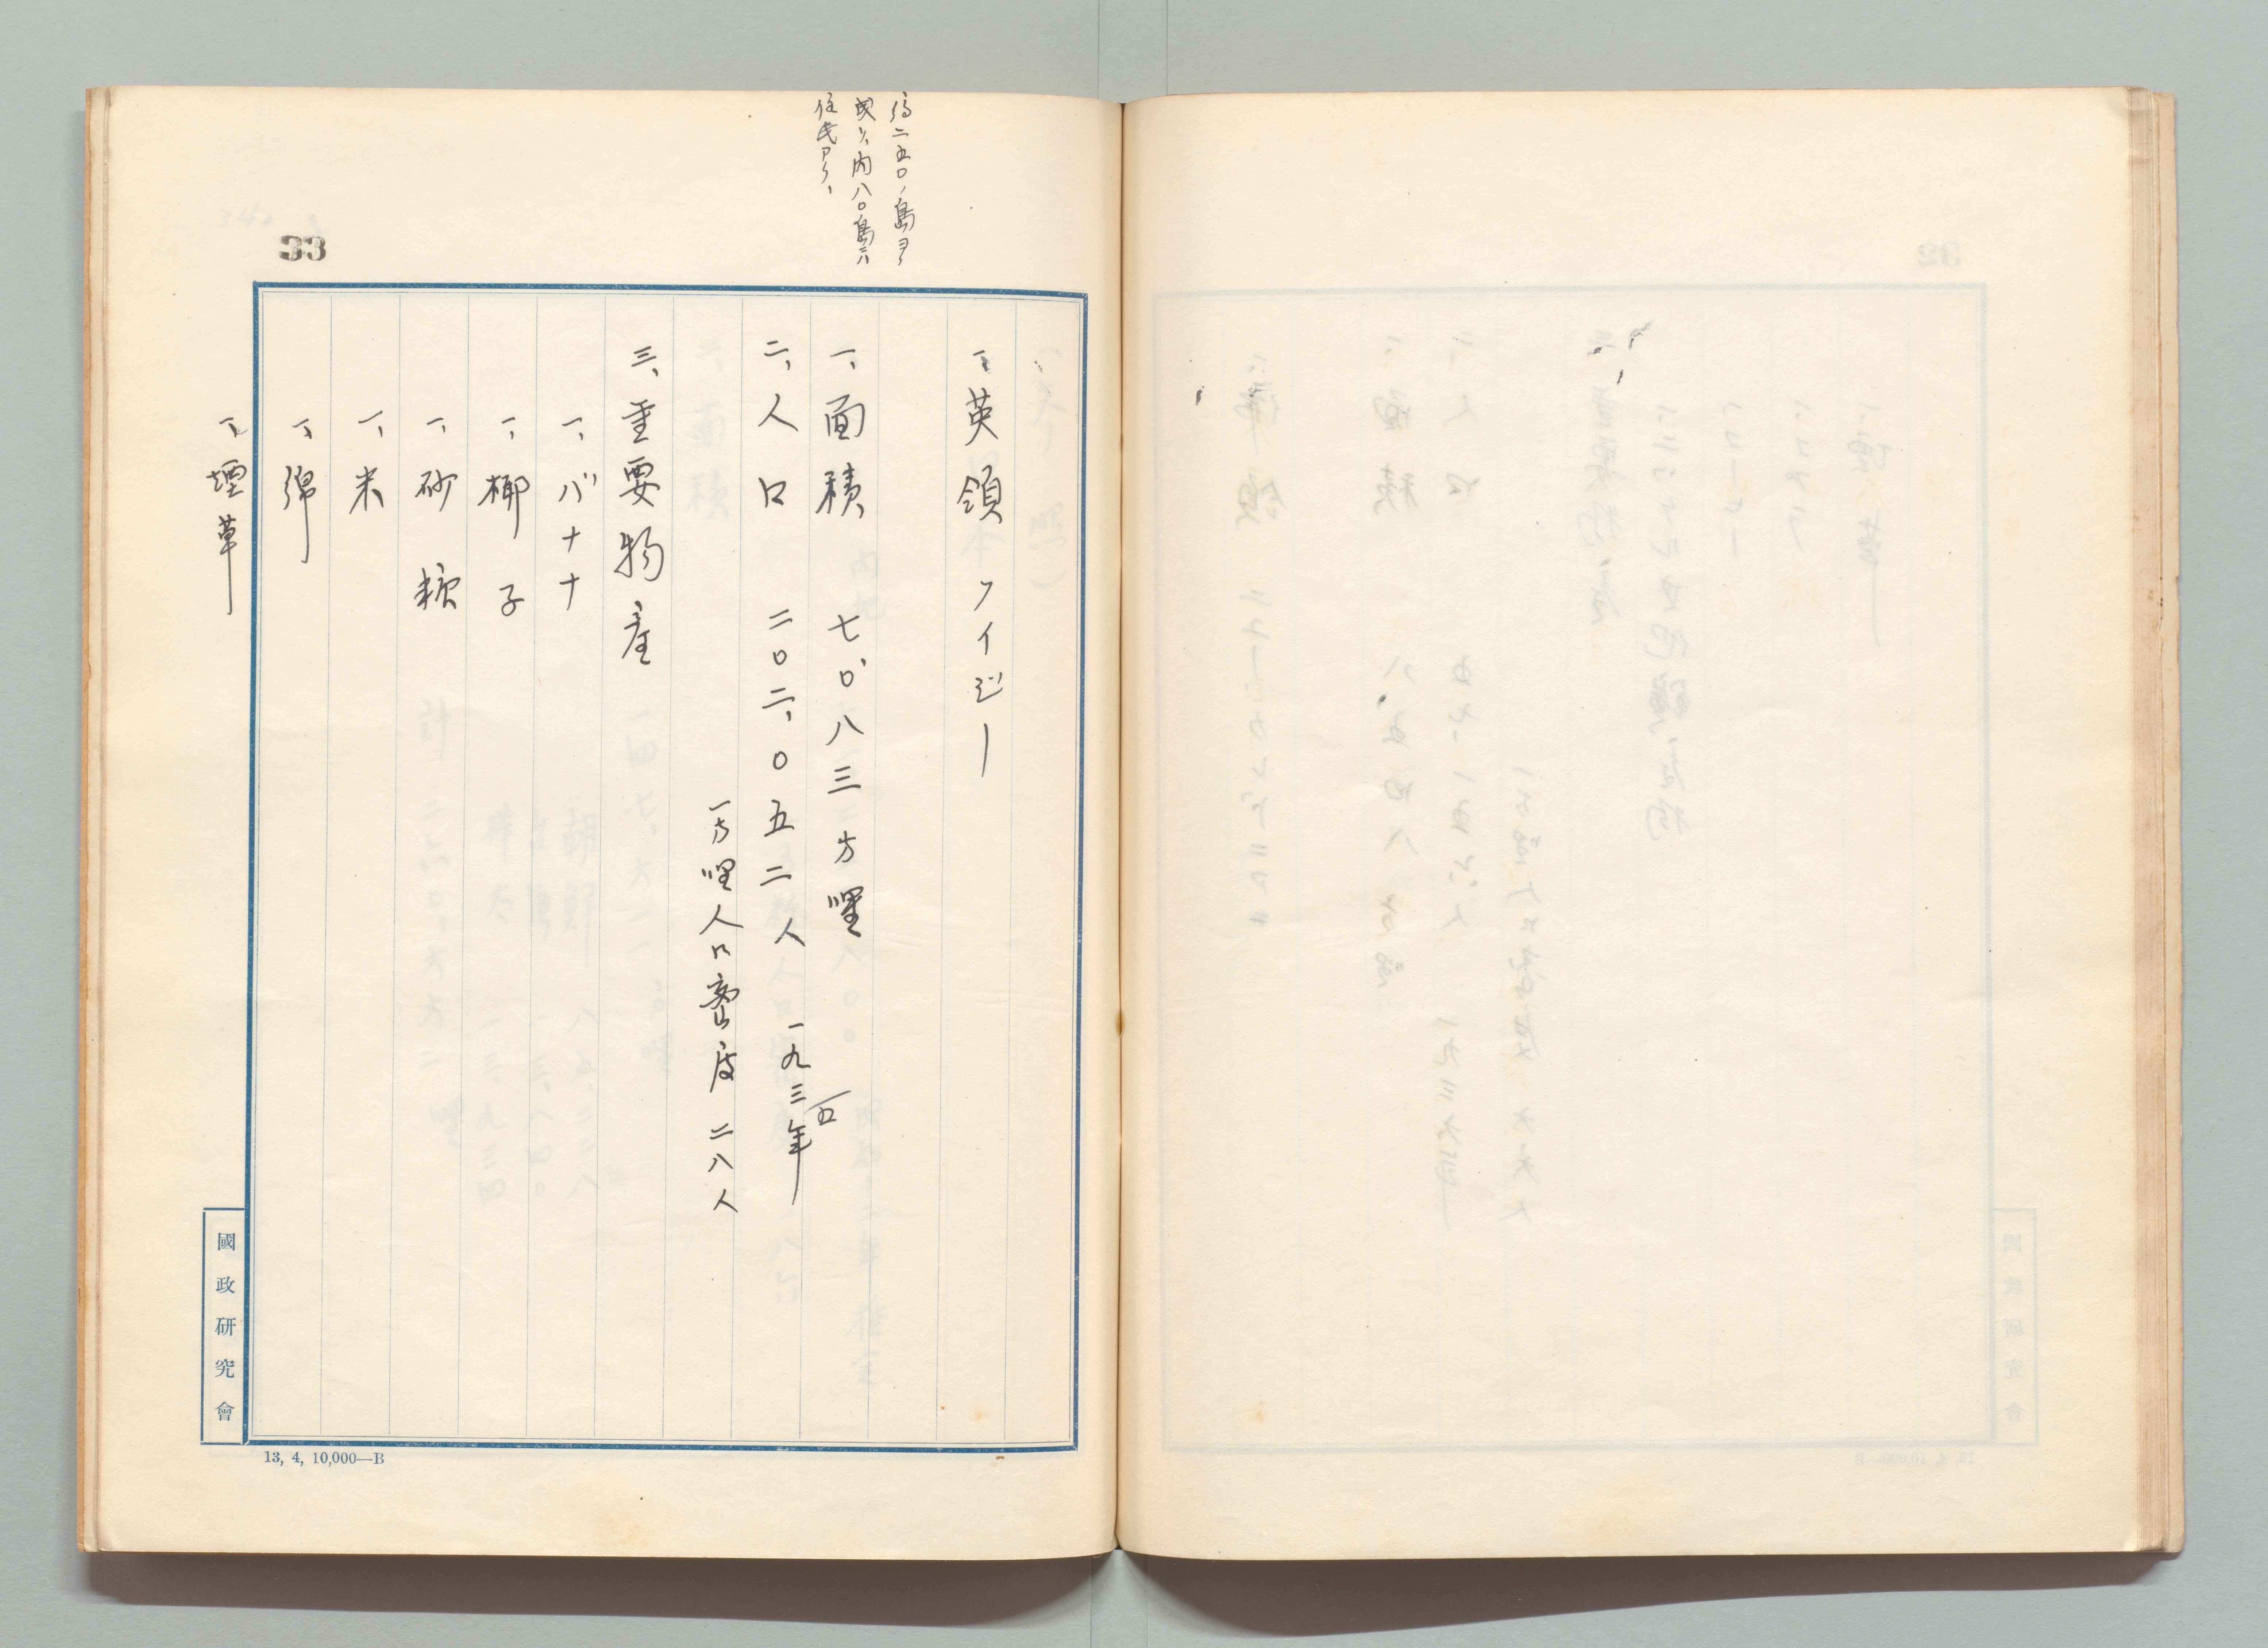 約二五〇ノ島ヨリ
成リ、内八〇島ニハ
住民アリ、
33
一、英領フイジー
一、面積 七、〇八三方哩
二、人口 二〇二、〇五二人 一九三五年
一方哩人口密度 二八人
三、重要物産
一、バナナ
一、椰子
一、砂糖
一、米
一、綿
一、煙草
國政研究會
13, 4, 10,000—B